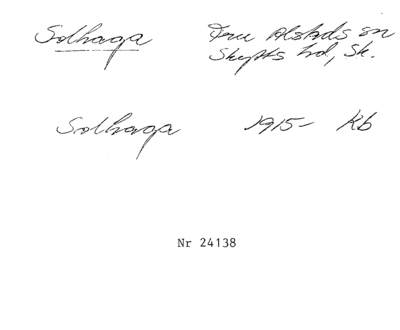 Solhaga Fru Alstads sn
Skytts hd, Sk.
Solhaga 1915- Kb
Nr 24138